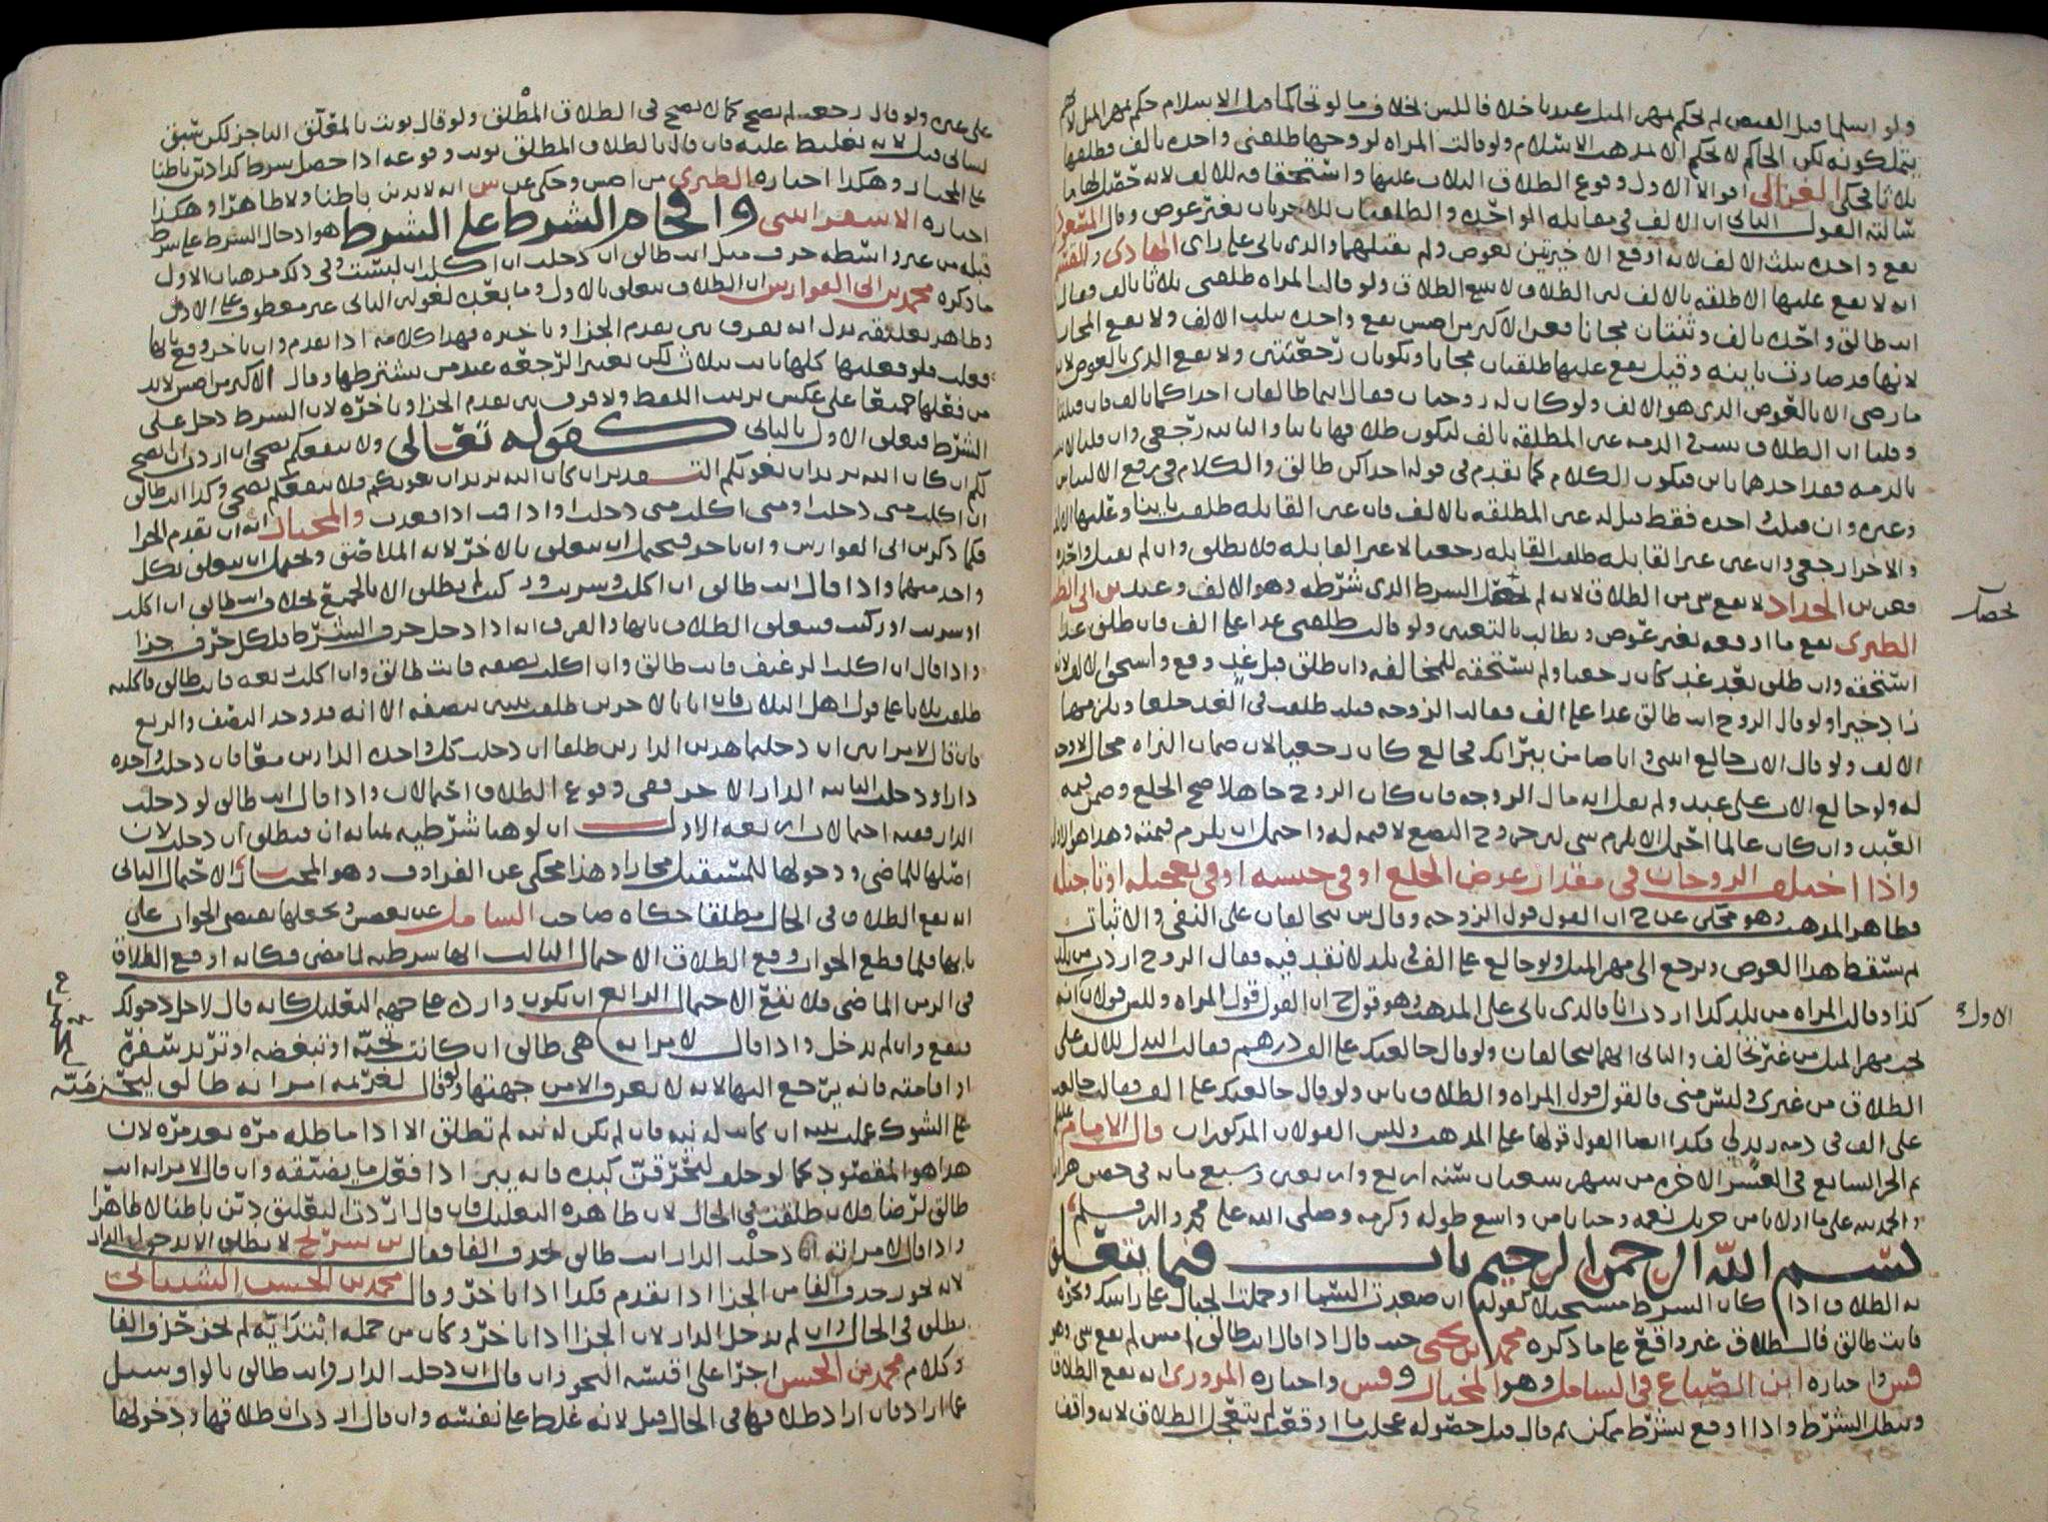 ولو اسلما قبل القبض لم يحكم بمهر المثل عندنا خلافا لـلس بخلاف ما لو تحاكما قبل الاسلام حكم بمهر المثل
الحاكم لا يحكم الا بمذهب الاسلام ولو قالت المراه لزوجها طلقني واحده بالف فطلقها
ثلاثا فحكى الغزالي اقوالا الاول وقوع الطلاق الثلاث عليها واستحقاقه للالف لانه حصل لها ما
سالته القول الثاني ان الالف في مقابله الواحده والطلقتان للاخريان بغير عوض وقال
يقع واحده بثلث الالف لانه اوقع الاخيرتين بعوض ولم يقبلهما والذي ياتي على راي الهادي
انه لا يقع عليها الا طلقه بالالف لان الطلاق لا يتبع الطلاق ولو قالت المراه طلقني ثلاثا بالف فقال
انت طالق واحده بالف وثنتان مجانا فعن الاكثر من اصش يقع واحده بثلث الالف ولا يقع المجان
لانها قد صارت باينه وقيل يقع عليها طلقتان مجانا ويكونان رجعيتين ولا يقع الذي بالعوض لانه
ما رضي الا بالعوض الذي هو الالف ولو كان له زوجتان فقال انتما طالقان احداكما بالف فان قبلتا
وقلنا ان الطلاق يثبت في الذمه عين المطلقه بالف ليكون طلاقها باينا والثانيه رجعي وان قلنا لا يثبت
بالذمه فقد احدهما باين فيكون الكلام كما تقدم في قوله احداكن طالق والكلام في رفع الالتباس
وغيره وان قبلت احده فقط قيل له عين المطلقه بالالف فان عين القابله طلقت باينا وعليها الالف
والاخرى رجعي وان عين غير القابله طلقت القابله رجعيا لا غير القابله فلا يطلق وان لم يقبل واحده
فعن بن الحداد لا يقع شي من الطلاق لانه لم يحصل الشرط الذي شرطه وهو الالف وعند بن ابي
الطبري يقع ما اوقعه بغير عوض ويطالب بالتعيين ولو قالت طلقني غدا على الف فان طلق غدا
استحقه وان طلق بعد غد كان رجعيا ولم يستحقه للمخالفه وان طلق قبل غد وقع واستحق الالف لانه
زاد خيرا ولو قال الزوج انت طالق غدا على الف فقالت الزوجه قبلت طلقت في الغد خلعا ويلزمها
الالف ولو قال الاب خالع ابنتي وانا ضامن ببراتك فخالع كان رجعيا لان ضمان البراه محال لا وجه
له ولو خالع الاب على عبد ولم يقل انه مال الزوجه فان كان الزوج جاهلا صح الخلع وضمن قيمه
العبد وان كان عالما احتمل الا يلزم شي لان خروج البضع لا قيمه له واحتمل ان يلزم قيمته وهذا هو الاولى
واذا اختلف الزوجان في مقدار عوض الخلع او في جنسه او في تعجيله او تاجيله
فظاهر المذهب وهو محكي عن ح ان القول قول الزوجه وقال ش يتحالفان على النفي والاثبات
ثم يسقط هذا العوض ويرجع الى مهر المثل ولو خالع على الف في بلد لا نقد فيه فقال الزوج اردت من بلد
كذا وقالت المراه من بلد كذا اردت انا فالذي ياتي على المذهب وهو قول ح ان القول قول المراه وللش قولان انه
يجب مهر المثل من غير تحالف والثاني انهما يتحالفان ولو قال خالعتك على الف درهم فقالت البدل للالف على
الطلاق من غيري وليس مني فالقول قول المراه والطلاق باين ولو قال خالعتك على الف فقالت خالعتني
على الف في ذمه زيد لي فكذا ايضا القول قولها على المذهب وللش القولان المذكوران قال الامام
تم الجز السابع في العشر الاخره من شهر شعبان سنه اربع واربعين وسبع مايه في حصن هران
والحمد لله على ما اولانا من جزيل نعمه وحبانا من واسع طوله وكرمه وصلى الله على محمد واله وسلم
بسم الله الرحمن الرحيم باب فيما يتعلق
به الطلاق اذا كان الشرط مستحيلا كقوله ان صعدت السما او حملت الجبال على راسك ونحوه
فانت طالق فالطلاق غير واقع على ما ذكره محمد بن يحيى حيث قال اذا قال انت طالق امس لم يقع شي وهو
قش واختاره ابن الصباغ في الشامل وهو المختار وقش واختاره المروزي انه يقع الطلاق
ويبطل الشرط واذا اوقع بشرط ممكن ثم قال قبل حصوله عجلت ما اوقعت لم يتعجل الطلاق لانه واقف
يحصل
الاول
على غيره ولو قال رجعت لم يصح كما لا يصح في الطلاق المطلق ولو قال نويت بالمعلق الناجز لكن سبق
لساني قبل لانه تغليط عليه فان قال بالطلاق المطلق نويت وقوعه اذا حصل شرط كذا دين باطنا
على المختار وهكذا اختاره الطبري من اصش وحكي عن ش انه لا يدين باطنا ولا ظاهرا وهكذا
اختاره الاسفرايني واقحام الشرط على الشرط هو ادخال الشرط على شرط
قبله من غير واسطه حرف مثل انت طالق ان دخلت ان اكلت ان لبست وفي ذلك مذهبان الاول
ما ذكره محمد بن ابي الفوارس ان الطلاق يتعلق بالاول وما بعده لغو لان الثاني غير معطوف على الاول
وظاهر تعليقه يدل انه لا يفرق بين تقدم الجزا وتاخيره فهذا كلامه اذا تقدم وان تاخر وقع بايها
فعلت فلو فعلتها كلها بانت بثلاث لكن بعتبر الرجعه عند من يشترطها وقال الاكثر من اصش لا بد
من فعلها جميعا على عكس ترتيب اللفظ ولا فرق بين تقدم الجزا وتاخره لان الشرط دخل على
الشرط فيعلق الاول بالثاني كقوله تعالى ولا ينفعكم نصحي ان اردت ان انصح
لكم ان كان الله يريد ان يغويكم التقدير ان كان الله يريد ان يغويكم فلا ينفعكم نصحي وكذا انت طالق
ان اكلت متى دخلت او متى اكلت متى دخلت او اذا قمت اذا قعدت والمختار انه ان تقدم الجزا
فكما ذكر بن ابي الفوارس وان تاخر فيحتمل ان يتعلق بالاخر لانه الملاصق ويحتمل ان يتعلق بكل
واحد منهما واذا قال انت طالق ان اكلت وشربت وركبت لم يطلق الا بالجميع بخلاف انت طالق ان اكلت
او شربت او ركبت فيتعلق الطلاق بايها والفرق انه اذا دخل حرف الشرط فلكل حرف جزا
واذا قال ان اكلت الرغيف فانت طالق وان اكلت نصفه فانت طالق وان اكلت ربعه فانت طالق فاكلته
طلقت ثلاثا على قول اهل الثلاث فان اتا بالاخرين طلقت ثنتين بنصفه الا انه قد وجد النصف والربع
فان قال لامراتين ان دخلتما هذين الدارين طلقتا ان دخلت كل واحده الدارين معا فان دخلت واحده
دارا ودخلت الثانيه الدار الاخرى ففي وقوع الطلاق احتمالان واذا قال انت طالق لو دخلت
الدار ففيه احتمالات اربعه الاول ان لو هنا شرطيه بمثابه ان فيطلق ان دخلت لان
اصلها للماضي ودخولها للمستقبل مجازا وهذا محكي عن الفرا وف وهو المختار الاحتمال الثاني
انه يقع الطلاق في الحال مطلقا حكاه صاحب الشامل عن بعضش ويجعلها تقتضي الجواب على
بابها فلما قطع الجواب وقع الطلاق الاحتمال الثالث انها شرطيه لما مضى فكانه اوقع الطلاق
في الزمن الماضي فلا يقع الاحتمال الرابع ان يكون وارده على جهه التعليل كانه قال لاجل دخولك
فيقع وان لم يدخل واذا قال لامراته هي طالق ان كانت تحبه او تبغضه او تريد سفره
او اقامته فانه يرجع اليها لانه لا يعرف الا من جهتها ولو قال لغريمه امراته طالق ليجزمنه
على الشوك عملت بنيته ان كانت له نيه فان لم يكن له نيه لم تطلق الا اذا ماطله مره بعد مره لان
هذا هو المقصود كما لو حلف ليخرقن كبده فانه يبر اذا فعل ما يضيقه وان قال لامراته انت
طالق لرضا فلان طلقت في الحال لان ظاهره التعليل فان قال اردت التعليق دين باطنا لا ظاهرا
واذا قال لامراته ان دخلت الدار انت طالق بحذف الفا فقال بن سريج لا يطلق الا بدخول الدار
لانه يجوز حذف الفا من الجزا اذا تقدم فكذا اذا تاخر وقال محمد بن الحسن الشيباني
يطلق في الحال وان لم يدخل الدار لان الجزا اذا تاخر وكان من جمله ابتدائيه لم يجز حذف الفا
وكلام محمد بن الحسن اجرا على اقيسه النحو وان قال ان دخلت الدار وانت طالق بالواو سئل
عما اراد فان اراد طلاقها في الحال قبل لانه غلظ على نفسه وان قال اردت ان طلاقها ودخولها